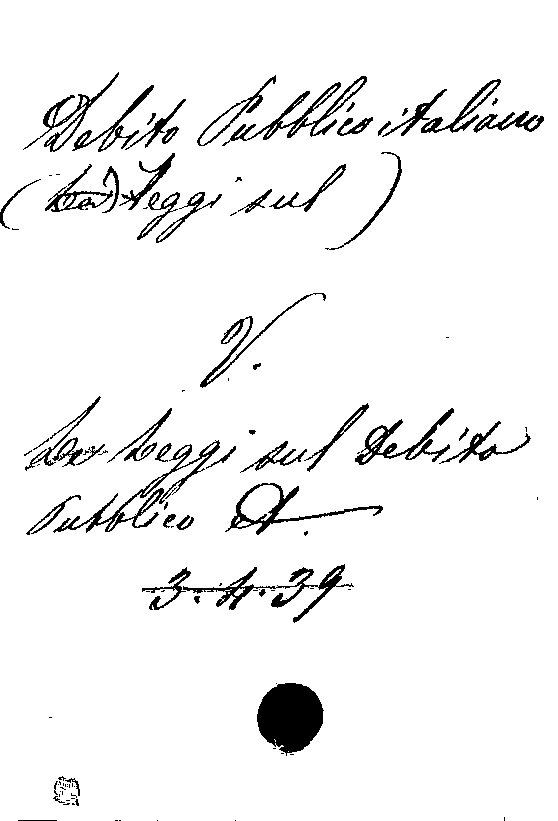 Debito Pubblico italiano
(Leggi sul)
V.
Leggi sul Debito
Pubblico
3.4.39